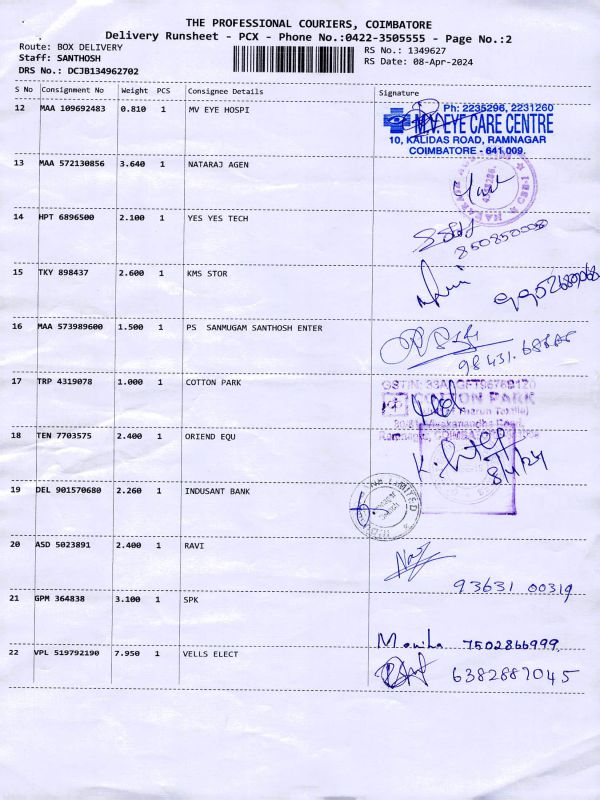 THE PROFESSIONAL COURIERS, COIMBATORE
Delivery Runsheet - PCX - Phone No.:0422-3505555 - Page No.:2
Route: BOX DELIVERY
RS No.: 1349627
Staff: SANTHOSH
RS Date: 08-Apr-2024
DRS No.: DCJB134962702
S No Consignment No Weight PCS Consignee Details Signature
12 MAA 109692483 0.810 1 MV EYE HOSPI
Ph: 2235296, 2231260
M.V. EYE CARE CENTRE
10, KALIDAS ROAD, RAMNAGAR
COIMBATORE - 641 009.
13 MAA 572130856 3.640 1 NATARAJ AGEN
14 HPT 6896500 2.100 1 YES YES TECH
15 TKY 898437 2.600 1 KMS STOR
16 MAA 573989600 1.500 1 PS SANMUGAM SANTHOSH ENTER
17 TRP 4319078 1.000 1 COTTON PARK
COTTON PARK
18 TEN 7703575 2.400 1 ORIEND EQU
8/4/24
19 DEL 901570680 2.260 1 INDUSANT BANK
20 ASD 5023891 2.400 1 RAVI
93631 00319
21 GPM 364838 3.100 1 SPK
Monika 7502866999
22 VPL 519792190 7.950 1 VELLS ELECT
6382887045